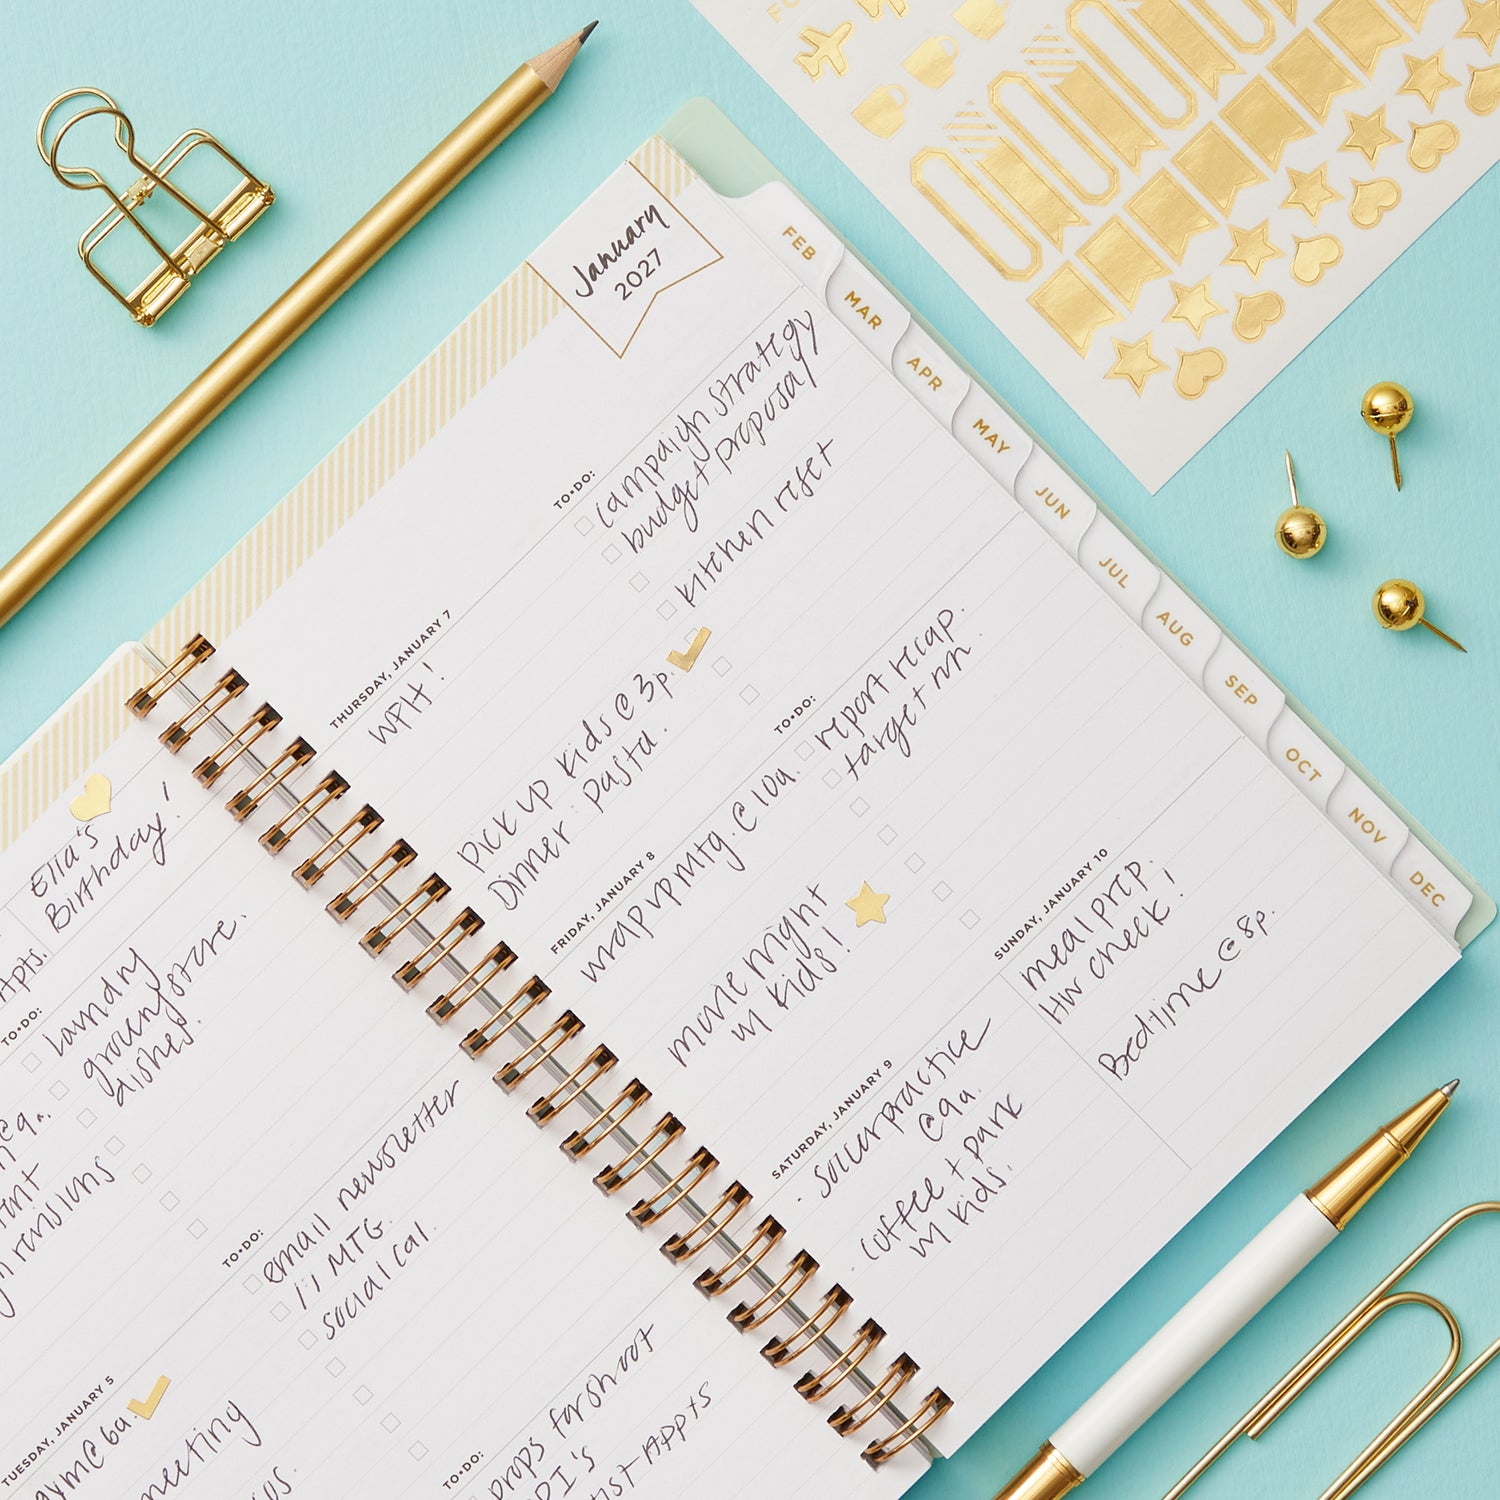 January
2027
FEB
MAR
APR
MAY
JUN
JUL
AUG
SEP
OCT
NOV
DEC
Ella's
Birthday!
Apts.
TO•DO:
laundry
grocery store.
dishes.
TUESDAY, JANUARY 5
gym @ 6a.
meeting
TO•DO:
email newsletter
1:1 MTG.
social cal.
TO•DO:
props for shoot
Appts
THURSDAY, JANUARY 7
WFH!
TO•DO:
campaign strategy
budget proposal
kitchen reset
Pick up kids @ 3p.
Dinner: Pasta.
FRIDAY, JANUARY 8
wrap up mtg. @ 10a.
TO•DO:
report recap.
target rn.
movie night
w/ kids!
SATURDAY, JANUARY 9
· soccer practice
@ 9a.
· coffee + park
w/ kids.
SUNDAY, JANUARY 10
meal prep.
HW check!
Bedtime @ 8p.